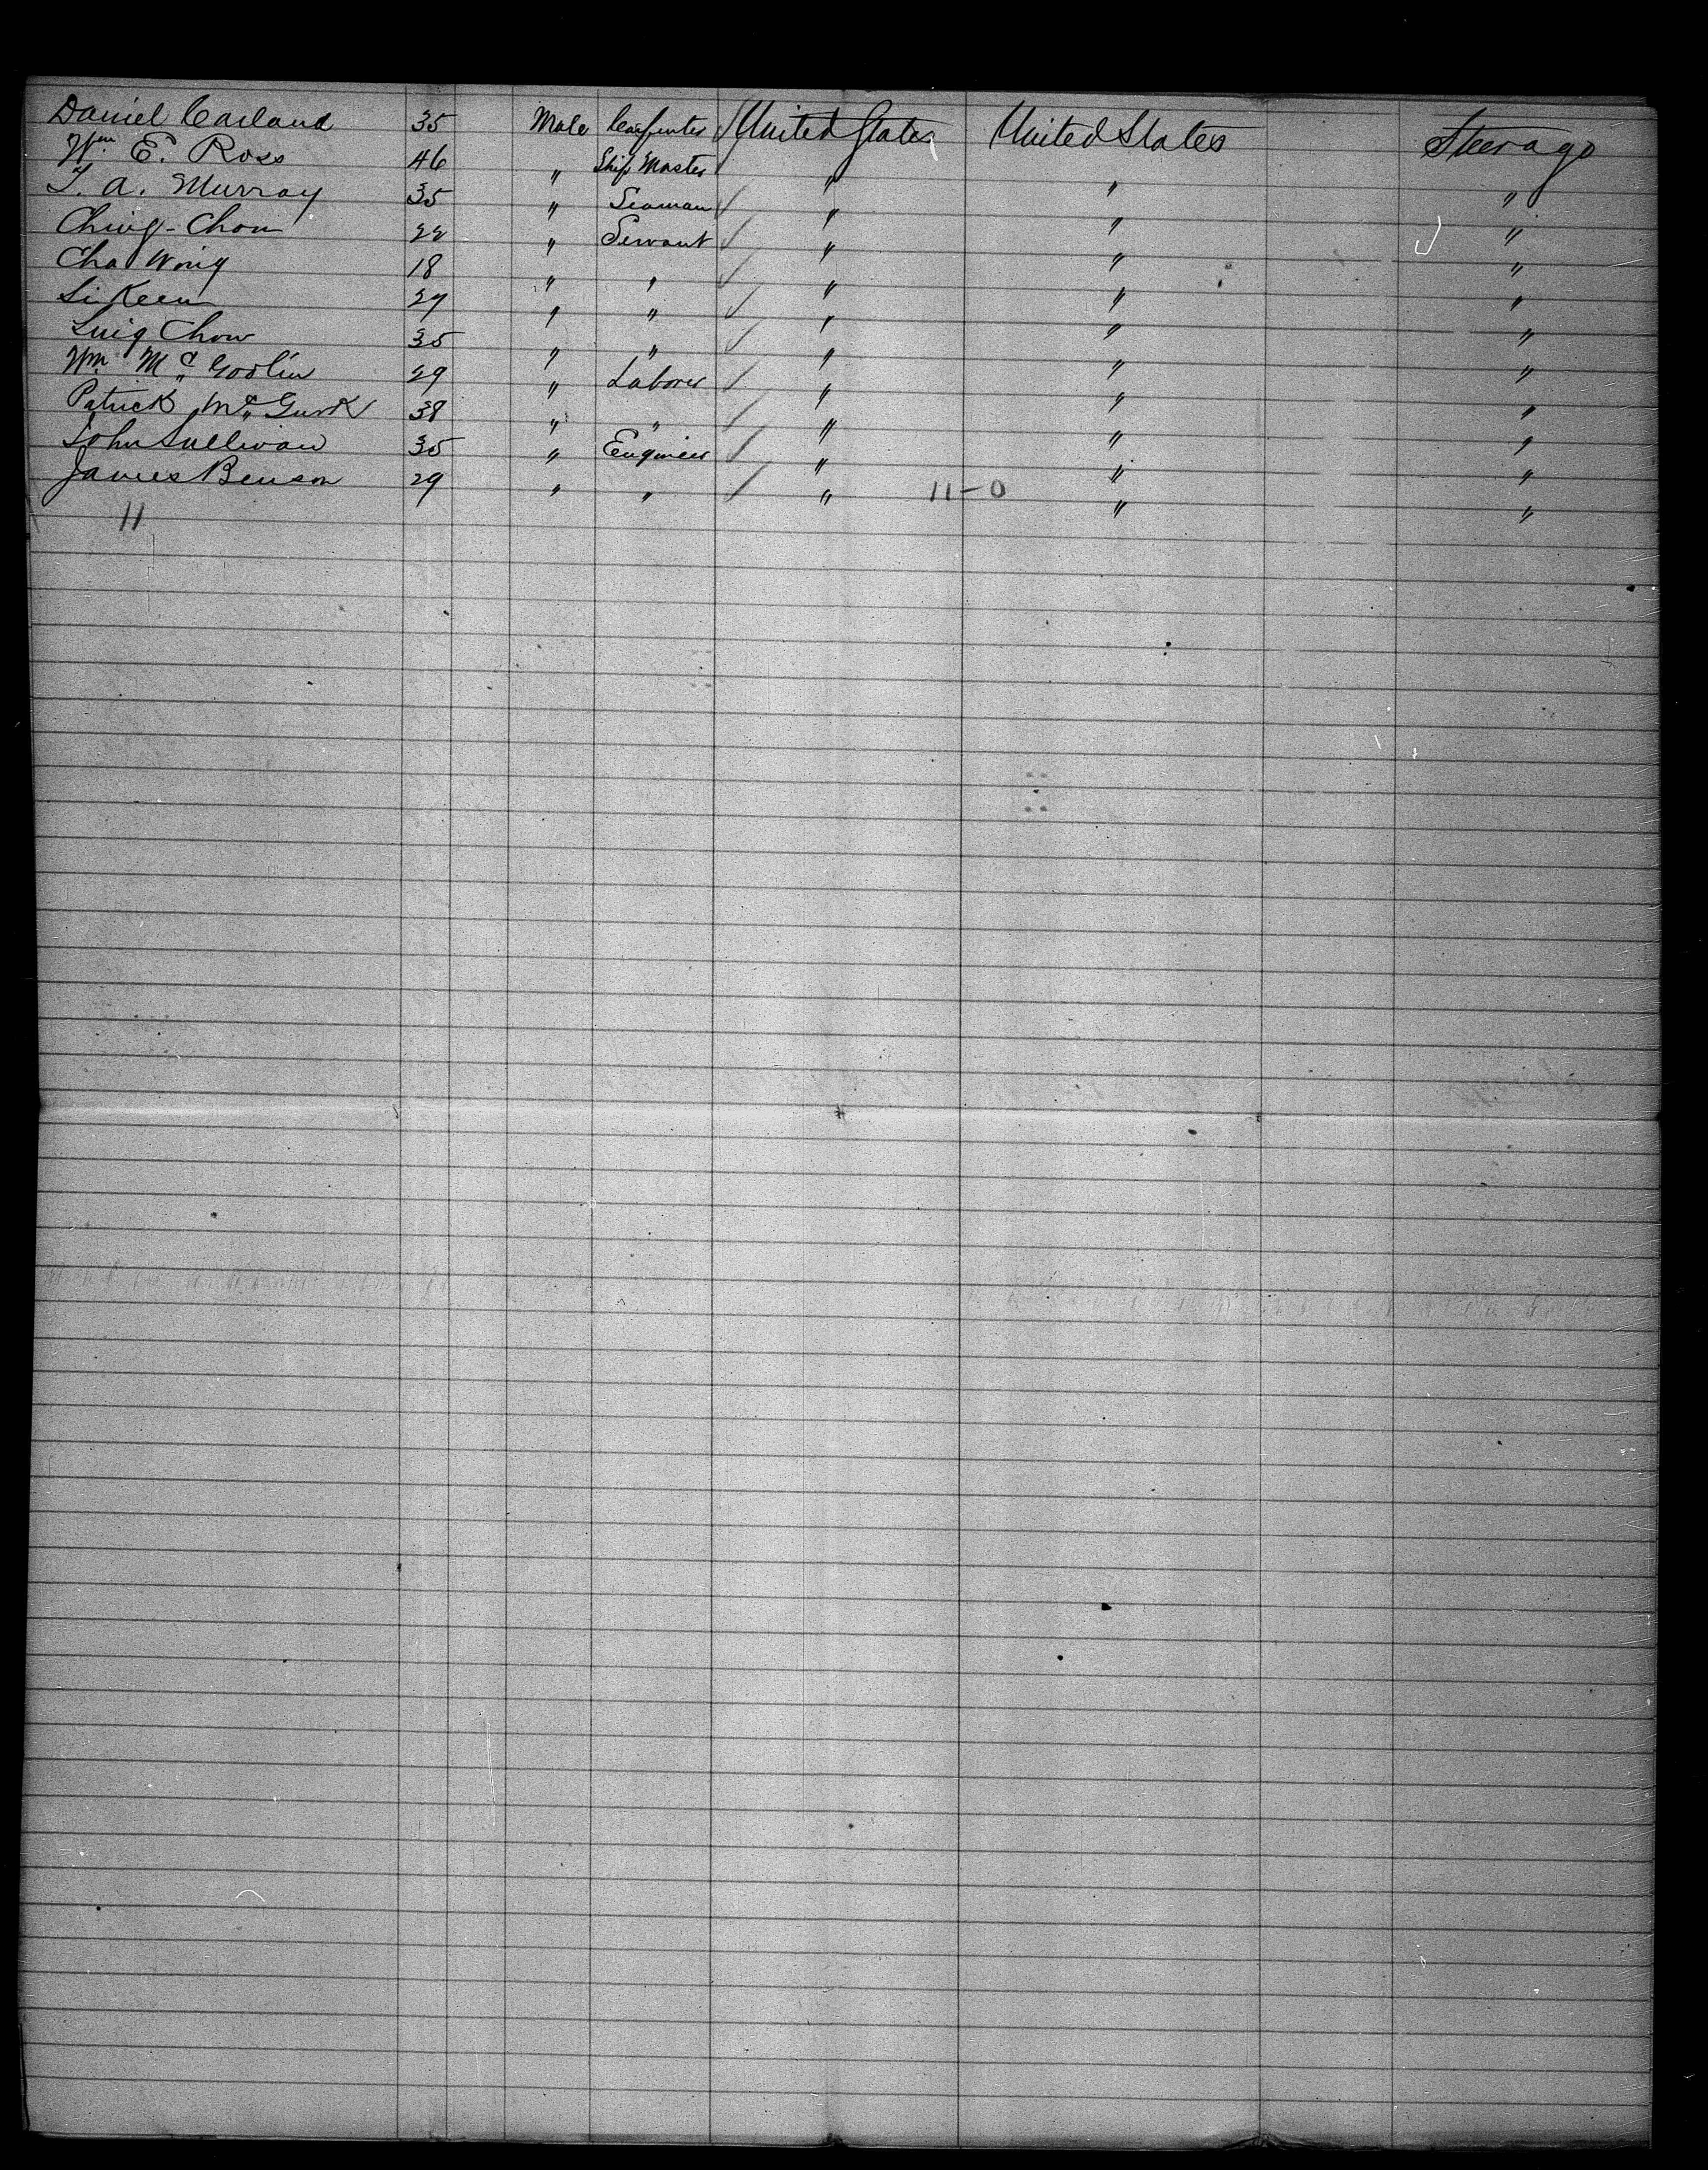 Daniel Carland 35 Male Carpenter United States United States Steerage
Wm E. Ross 46 " Ship Master " " "
T. A. Murray 35 " Seaman " " "
Ching-Chow 22 " Servant " " "
Cha Wong 18 " " " " "
Li Keen 29 " " " " "
Luig Chow 35 " " " " "
Wm Mc Goolin 29 " Laborer " " "
Patrick Mc Gurk 38 " " " " "
John Sullivan 35 " Engineer " " "
James Benson 29 " " " 11-0 " "
11